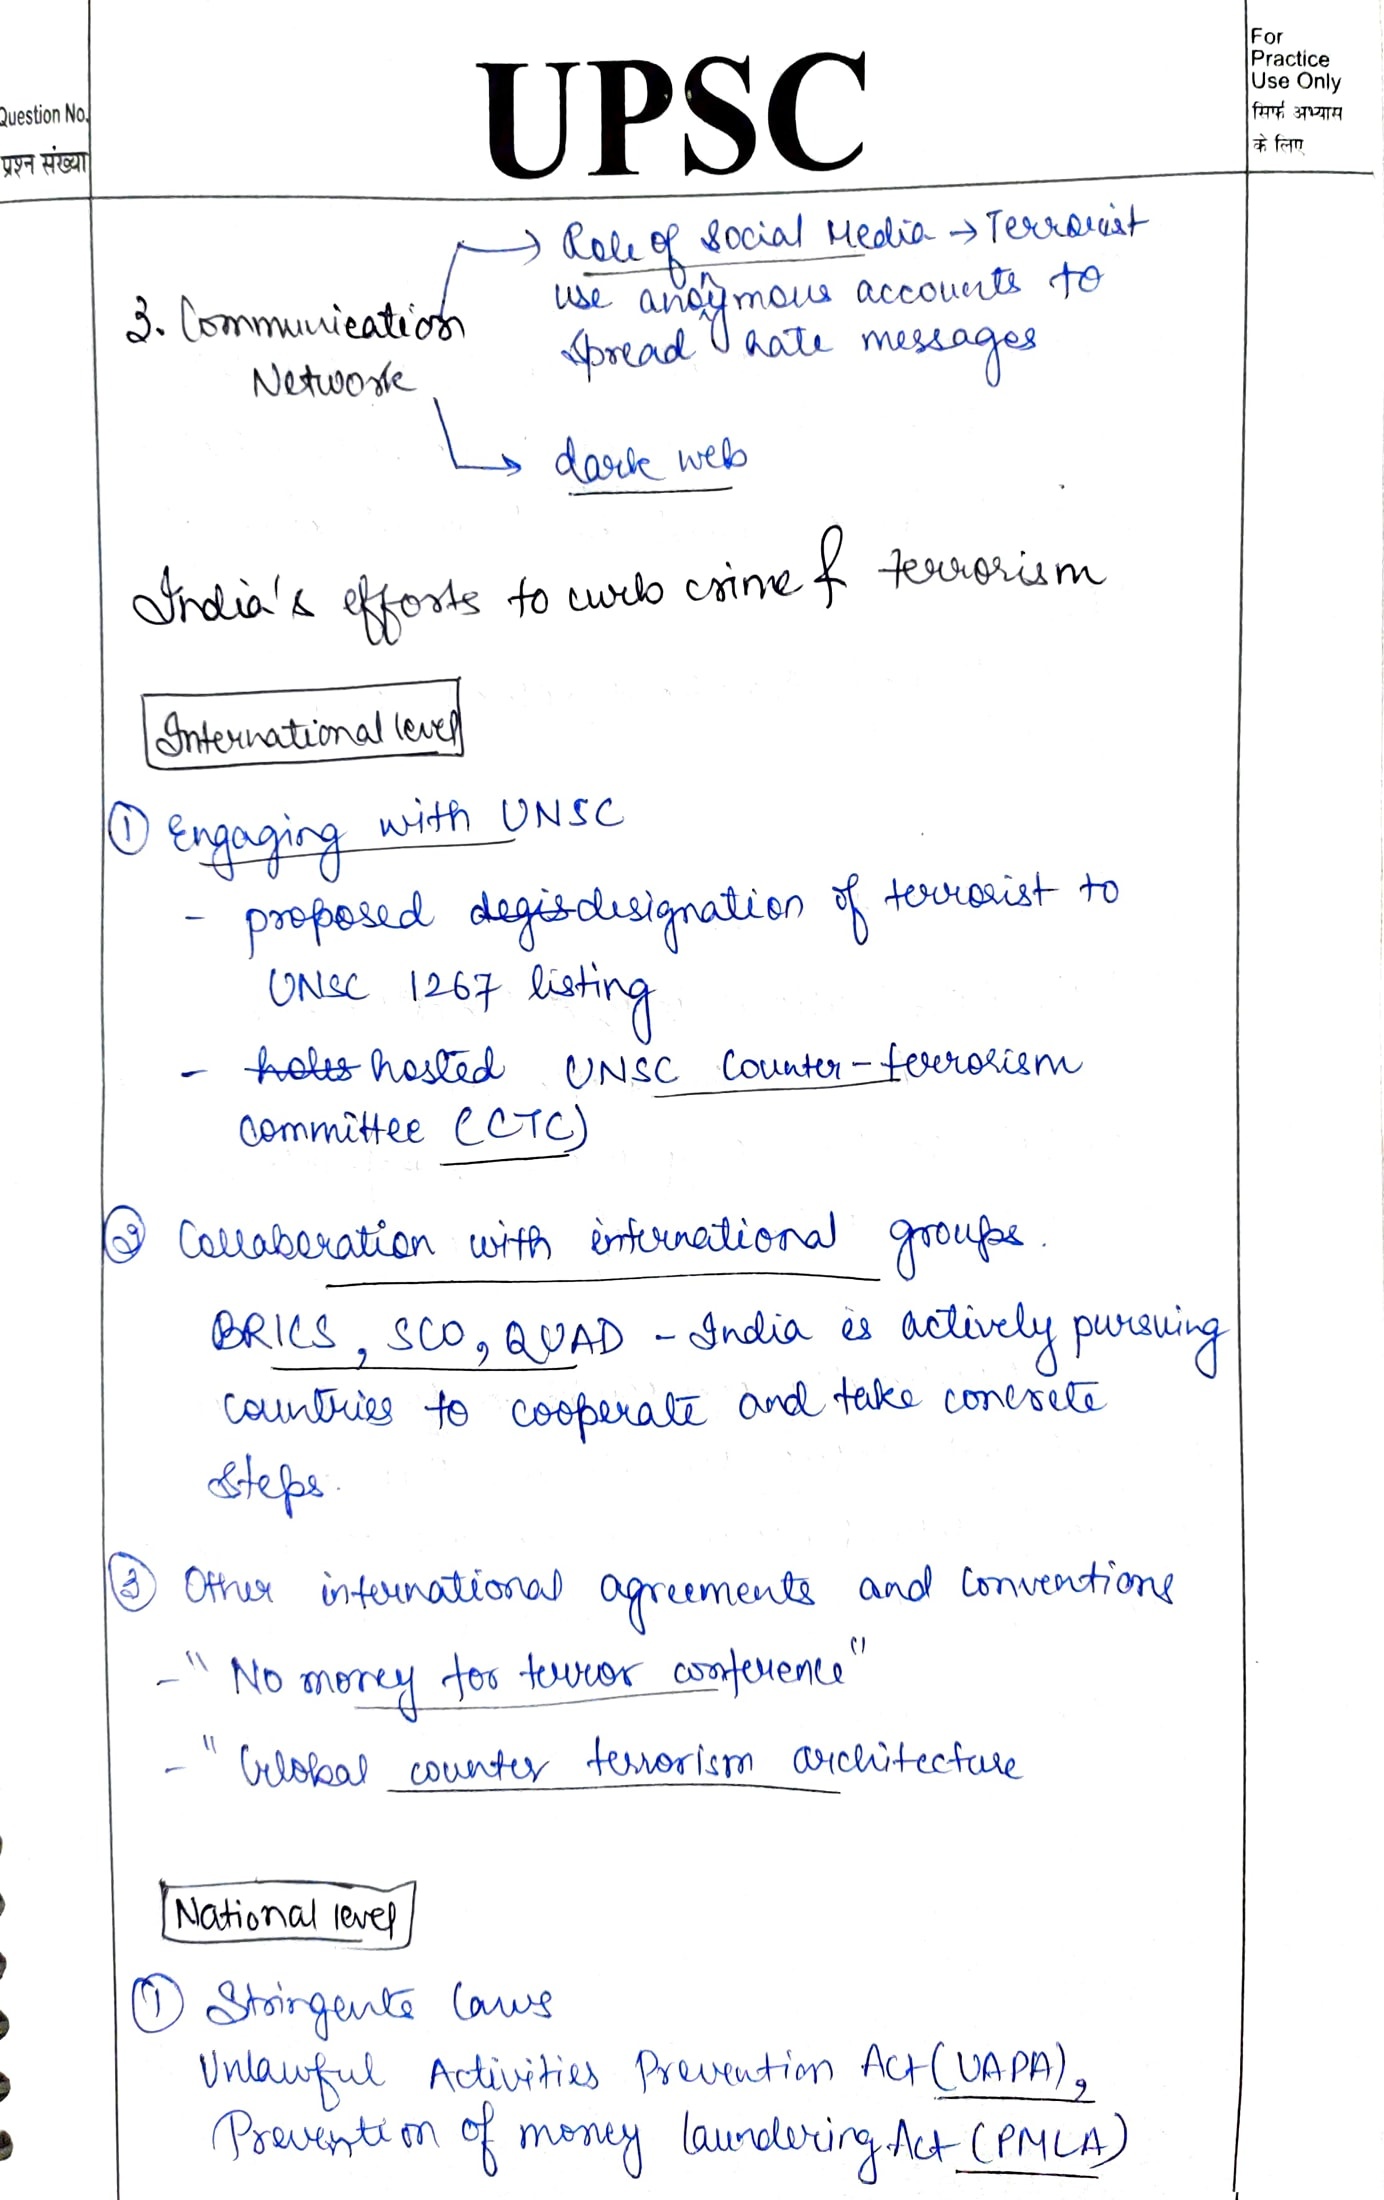 Question No.
प्रश्न संख्या
UPSC
For
Practice
Use Only
सिर्फ अभ्यास
के लिए
3. Communication
Network
→ Role of Social Media → Terrorist
use anonymous accounts to
spread hate messages
→ dark web
India's efforts to curb crime & terrorism
International level
① Engaging with UNSC
- proposed degis designation of terrorist to
UNSC 1267 listing
- hosted UNSC Counter-terrorism
committee (CTC)
② Collaboration with international groups.
BRICS, SCO, QUAD - India is actively pursuing
countries to cooperate and take concrete
steps.
③ Other international agreements and conventions
- "No money for terror conference"
- "Global counter terrorism architecture
National level
① Stringente laws
Unlawful Activities Prevention Act (UAPA),
Prevention of money laundering Act (PMLA)